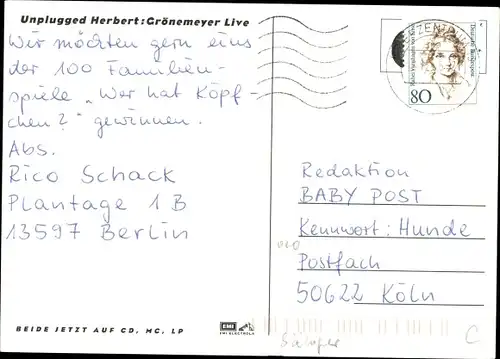 Unplugged Herbert:Grönemeyer Live
Wir möchten gern eins
der 100 Familien-
spiele „Wer hat Köpf-
chen?" gewinnen.
Abs.
Rico Schack
Plantage 1 B
13597 Berlin
80
Redaktion
BABY POST
Kennwort: Hunde
Postfach
50622 Köln
BEIDE JETZT AUF CD, MC, LP
EMI
EMI ELECTROLA
Sänger
C